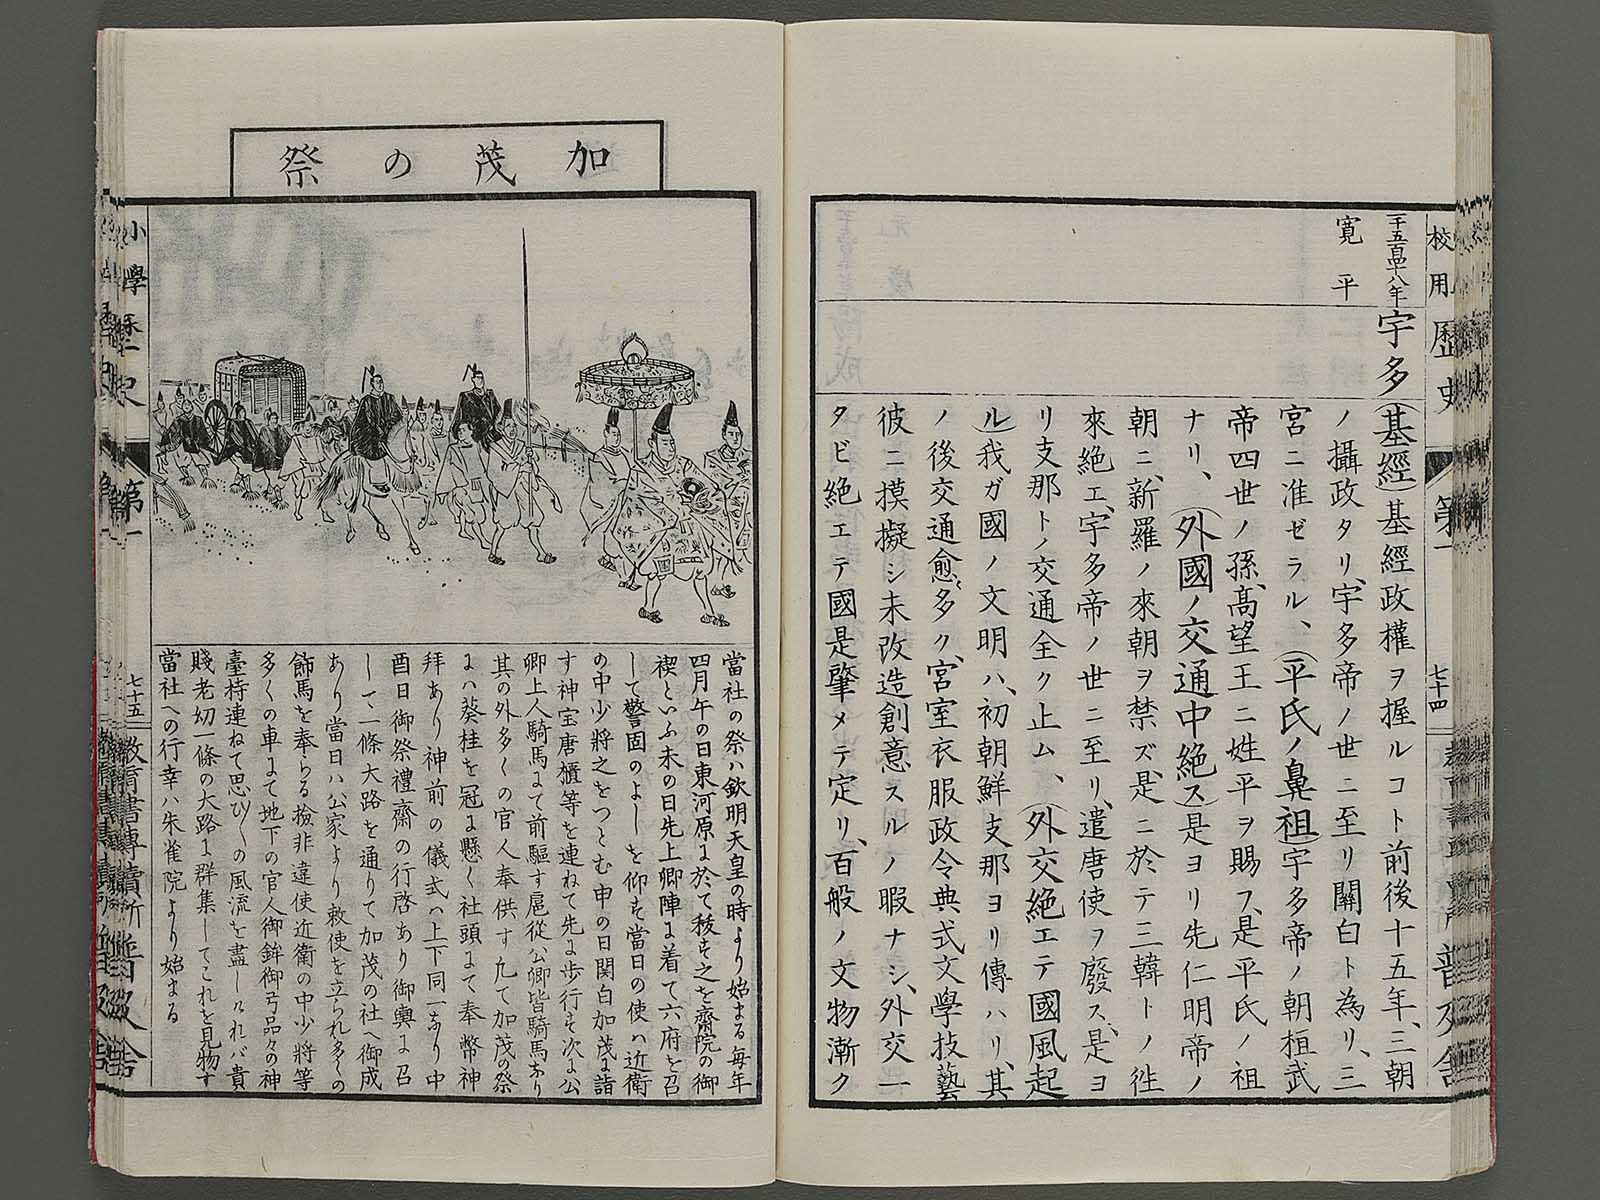 校用歷史
第一
七十四
普及舍
千五百四十八年
寛平
宇多(基經)基經政權ヲ握ルコト前後十五年、三朝
ノ攝政タリ、宇多帝ノ世ニ至リ關白ト為リ、三
宮ニ准ゼラル、(平氏ノ鼻祖)宇多帝ノ朝桓武
帝四世ノ孫、高望王ニ姓平ヲ賜フ、是平氏ノ祖
ナリ、(外國ノ交通中絶ス)是ヨリ先仁明帝ノ
朝ニ、新羅ノ來朝ヲ禁ズ、是ニ於テ三韓トノ徃
來絶エ、宇多帝ノ世ニ至リ、遣唐使ヲ廢ス、是ヨ
リ支那トノ交通全ク止ム、(外交絶エテ國風起
ル)我ガ國ノ文明ハ、初朝鮮支那ヨリ傳ハリ、其
ノ後交通愈〻多ク、宮室衣服政令典式文學技藝
彼ニ摸擬シ未改造創意スルノ暇ナシ、外交一
タビ絶エテ國是肇メテ定リ、百般ノ文物漸ク
加茂の祭
當社の祭ハ欽明天皇の時より始まる毎年
四月午の日東河原に於て稜す之を齋院の御
禊といふ未の日先上卿陣に着て六府を召
して警固のよしを仰す當日の使ハ近衛
の中少將之をつとむ申の日関白加茂に詣
す神宝唐櫃等を連ねて先に歩行す次に公
卿上人騎馬にて前驅す扈從公卿皆騎馬なり
其の外多くの官人奉供す凡て加茂の祭
にハ葵桂を冠に懸く社頭にて奉幣神
拜あり神前の儀式ハ上下同一なり中
酉日御祭禮齋の行啓あり御輿に召
して一條大路を通りて加茂の社へ御成
あり當日ハ公家より敕使を立られ多くの
飾馬を奉らる撿非違使近衛の中少將等
多くの車にて地下の官人御鉾御弓品々の神
臺持連ねて思ひ〳〵の風流を盡しけれバ貴
賤老幼一條の大路に群集してこれを見物す
當社への行幸ハ朱雀院より始まる
小學歷史
第一
七十五
普及舍